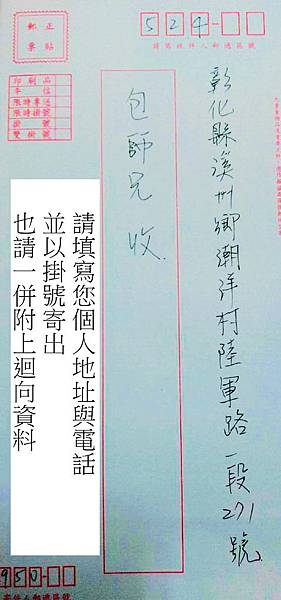 正貼
郵票
524
請寫收件人郵遞區號
印刷品
平信
限時專送
限時掛號
掛號
雙掛號
彰化縣溪州鄉潮洋村陸軍路一段271號
包師兄 收
請填寫您個人地址與電話
並以掛號寄出
也請一併附上迴向資料
950
寄件人郵遞區號